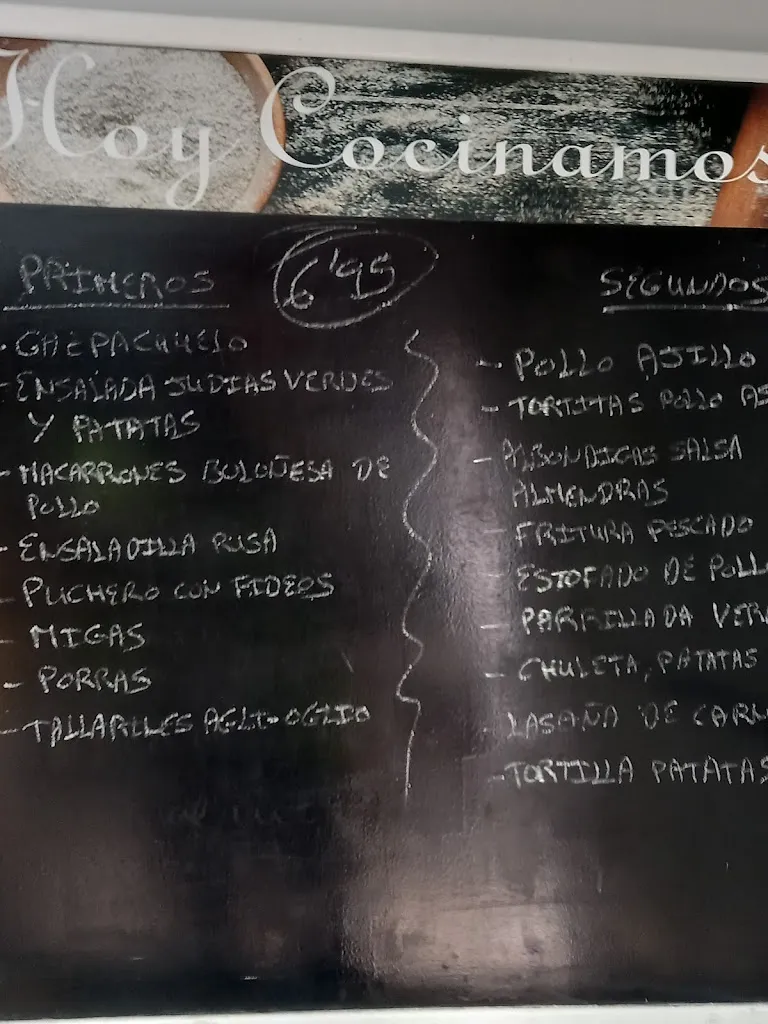 Hoy Cocinamos
PRIMEROS
6'95
- GAZPACHUELO
- ENSALADA JUDIAS VERDES
Y PATATAS
- MACARRONES BULOÑESA DE
POLLO
- ENSALADILLA RUSA
- PUCHERO CON FIDEOS
- MIGAS
- PORRAS
- TALLARILES AGLI-OGLIO
SEGUNDOS
- POLLO AJILLO
- TORTITAS POLLO AS
- ALBONDIGAS SALSA
ALMENDRAS
- FRITURA PESCADO
- ESTOFADO DE POLLO
- PARRILLADA VER
- CHULETA, PATATAS
- LASAÑA DE CARN
- TORTILLA PATATAS